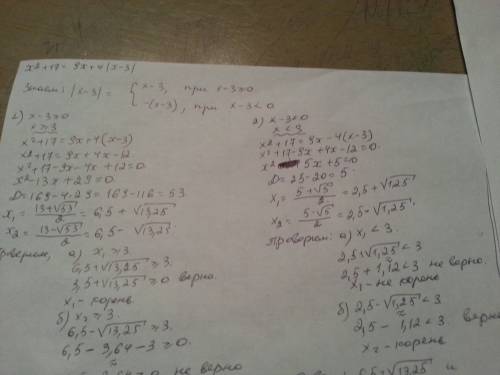 x²+17=9x+4|x-3|
Знаем: |x-3| = { x-3, при x-3≥0
-(x-3), при x-3<0
1) x-3≥0
x≥3
x²+17=9x+4(x-3)
x²+17=9x+4x-12
x²+17-9x-4x+12=0.
x²-13x+29=0.
D=169-4·29=169-116=53.
x₁ = (13+√53)/2 = 6,5+√13,25
x₂ = (13-√53)/2 = 6,5-√13,25.
а) x₁≥3.
6,5+√13,25≥3.
3,5+√13,25≥0 верно.
x₁ - корень.
б) x₂≥3.
6,5-√13,25≥3.
6,5-3,64-3≥0.
не верно
2) x-3<0
x<3
x²+17=9x-4(x-3)
x²+17-9x+4x-12=0.
x² 5x+5=0
D=25-20=5.
x₁ = (5+√5)/2 = 2,5+√1,25
x₂ = (5-√5)/2 = 2,5-√1,25.
Проверяем: а) x₁<3
2,5+√1,25<3
2,5+1,12<3 не верно.
x₁ - не корень
б) 2,5-√1,25<3
2,5-1,12<3 верно
x₂ - корень
6,5+√13,25 и